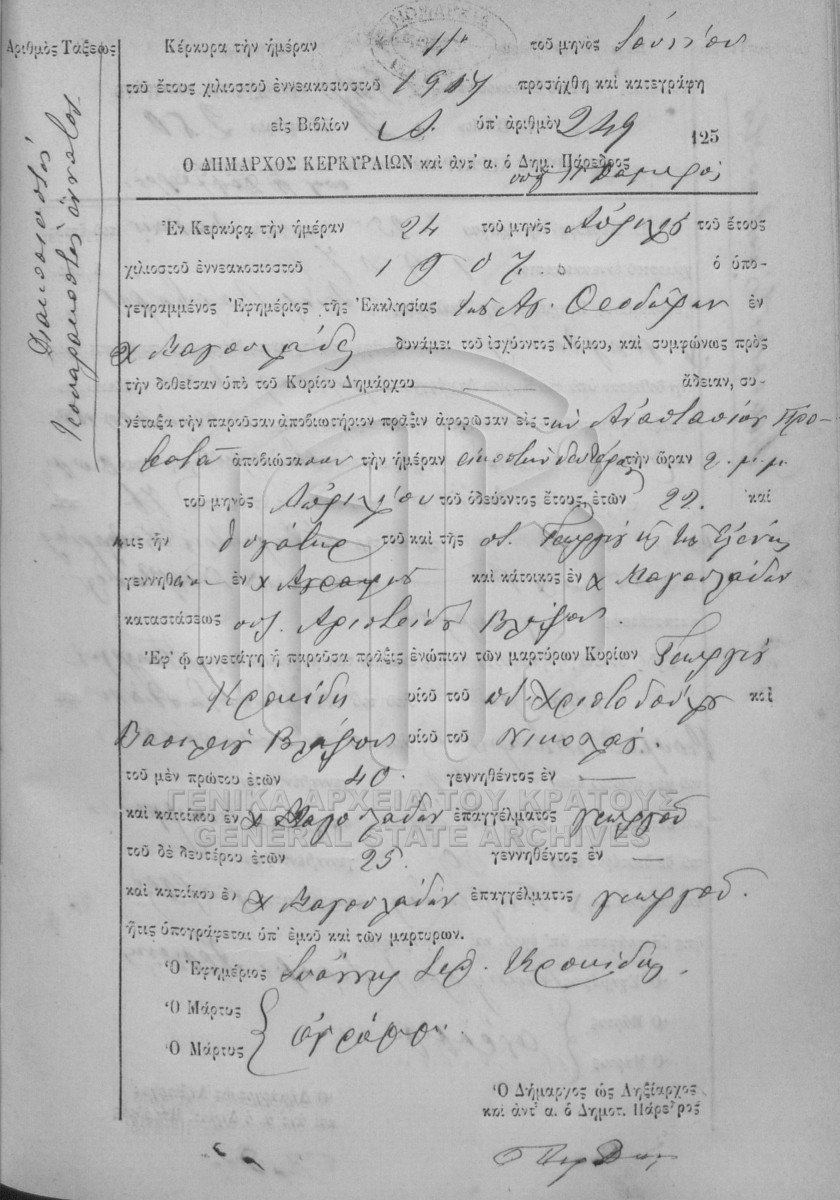 Ἀριθμὸς Τάξεως
Διακοσιοστὸς
τεσσαρακοστὸς ἔννατος
Κέρκυρα τὴν ἡμέραν 11ην τοῦ μηνὸς Ἰουνίου
τοῦ ἔτους χιλιοστοῦ ἐννεακοσιοστοῦ 1907 προσήχθη καὶ κατεγράφη
εἰς Βιβλίον Α. ὑπ' ἀριθμὸν 249 125
Ὁ ΔΗΜΑΡΧΟΣ ΚΕΡΚΥΡΑΙΩΝ καὶ ἀντ' α. ὁ Δημ. Πάρεδρος
Ἐν Κερκύρᾳ τὴν ἡμέραν 24 τοῦ μηνὸς Ἀπριλίου τοῦ ἔτους
χιλιοστοῦ ἐννεακοσιοστοῦ 1907. ὁ ὑπο-
γεγραμμένος Ἐφημέριος τῆς Ἐκκλησίας τῶν Ἁγ. Θεοδώρων ἐν
χ Μαγουλάδες δυνάμει τοῦ ἰσχύοντος Νόμου, καὶ συμφώνως πρὸς
τὴν δοθεῖσαν ὑπὸ τοῦ Κυρίου Δημάρχου ἄδειαν, συ-
νέταξα τὴν παροῦσαν ἀποβιωτήριον πρᾶξιν ἀφορῶσαν εἰς τὴν Ἀναστασίαν Προ-
βατᾶ ἀποβιώσασαν τὴν ἡμέραν εἰκοστὴν δευτέραν τὴν ὥραν 2. μ. μ.
τοῦ μηνὸς Ἀπριλίου τοῦ ὁδεύοντος ἔτους, ἐτῶν 22. καὶ
ἥτις ἦν θυγάτηρ τοῦ καὶ τῆς ποτ. Γεωργίου κ τῆς Ἑλένης
γεννηθεῖσα ἐν χ καὶ κάτοικος ἐν χ Μαγουλάδων
καταστάσεως συζ. Ἀριστείδου Βλάχου.
Ἐφ' ᾧ συνετάγη ἡ παροῦσα πρᾶξις ἐνώπιον τῶν μαρτύρων Κυρίων Γεωργίου
Κροκίδη υἱοῦ τοῦ ποτ. Χριστοδούλου καὶ
Βασιλείου Βλάχου υἱοῦ τοῦ Νικολάου.
τοῦ μὲν πρώτου ἐτῶν 40. γεννηθέντος ἐν —
καὶ κατοίκου ἐν χ Μαγουλάδων ἐπαγγέλματος γεωργοῦ
τοῦ δὲ δευτέρου ἐτῶν 25. γεννηθέντος ἐν —
καὶ κατοίκου ἐν χ Μαγουλάδων ἐπαγγέλματος γεωργοῦ.
ἥτις ὑπογράφεται ὑπ' ἐμοῦ καὶ τῶν μαρτυρων.
Ὁ Ἐφημέριος Ἰωάννης Ἱερ. Κροκίδης.
Ὁ Μάρτυς
Ὁ Μάρτυς ἀγράμμ.
Ὁ Δήμαρχος ὡς Ληξίαρχος
καὶ ἀντ' α. ὁ Δημοτ. Πάρεδρος
ΓΕΝΙΚΑ ΑΡΧΕΙΑ ΤΟΥ ΚΡΑΤΟΥΣ
GENERAL STATE ARCHIVES